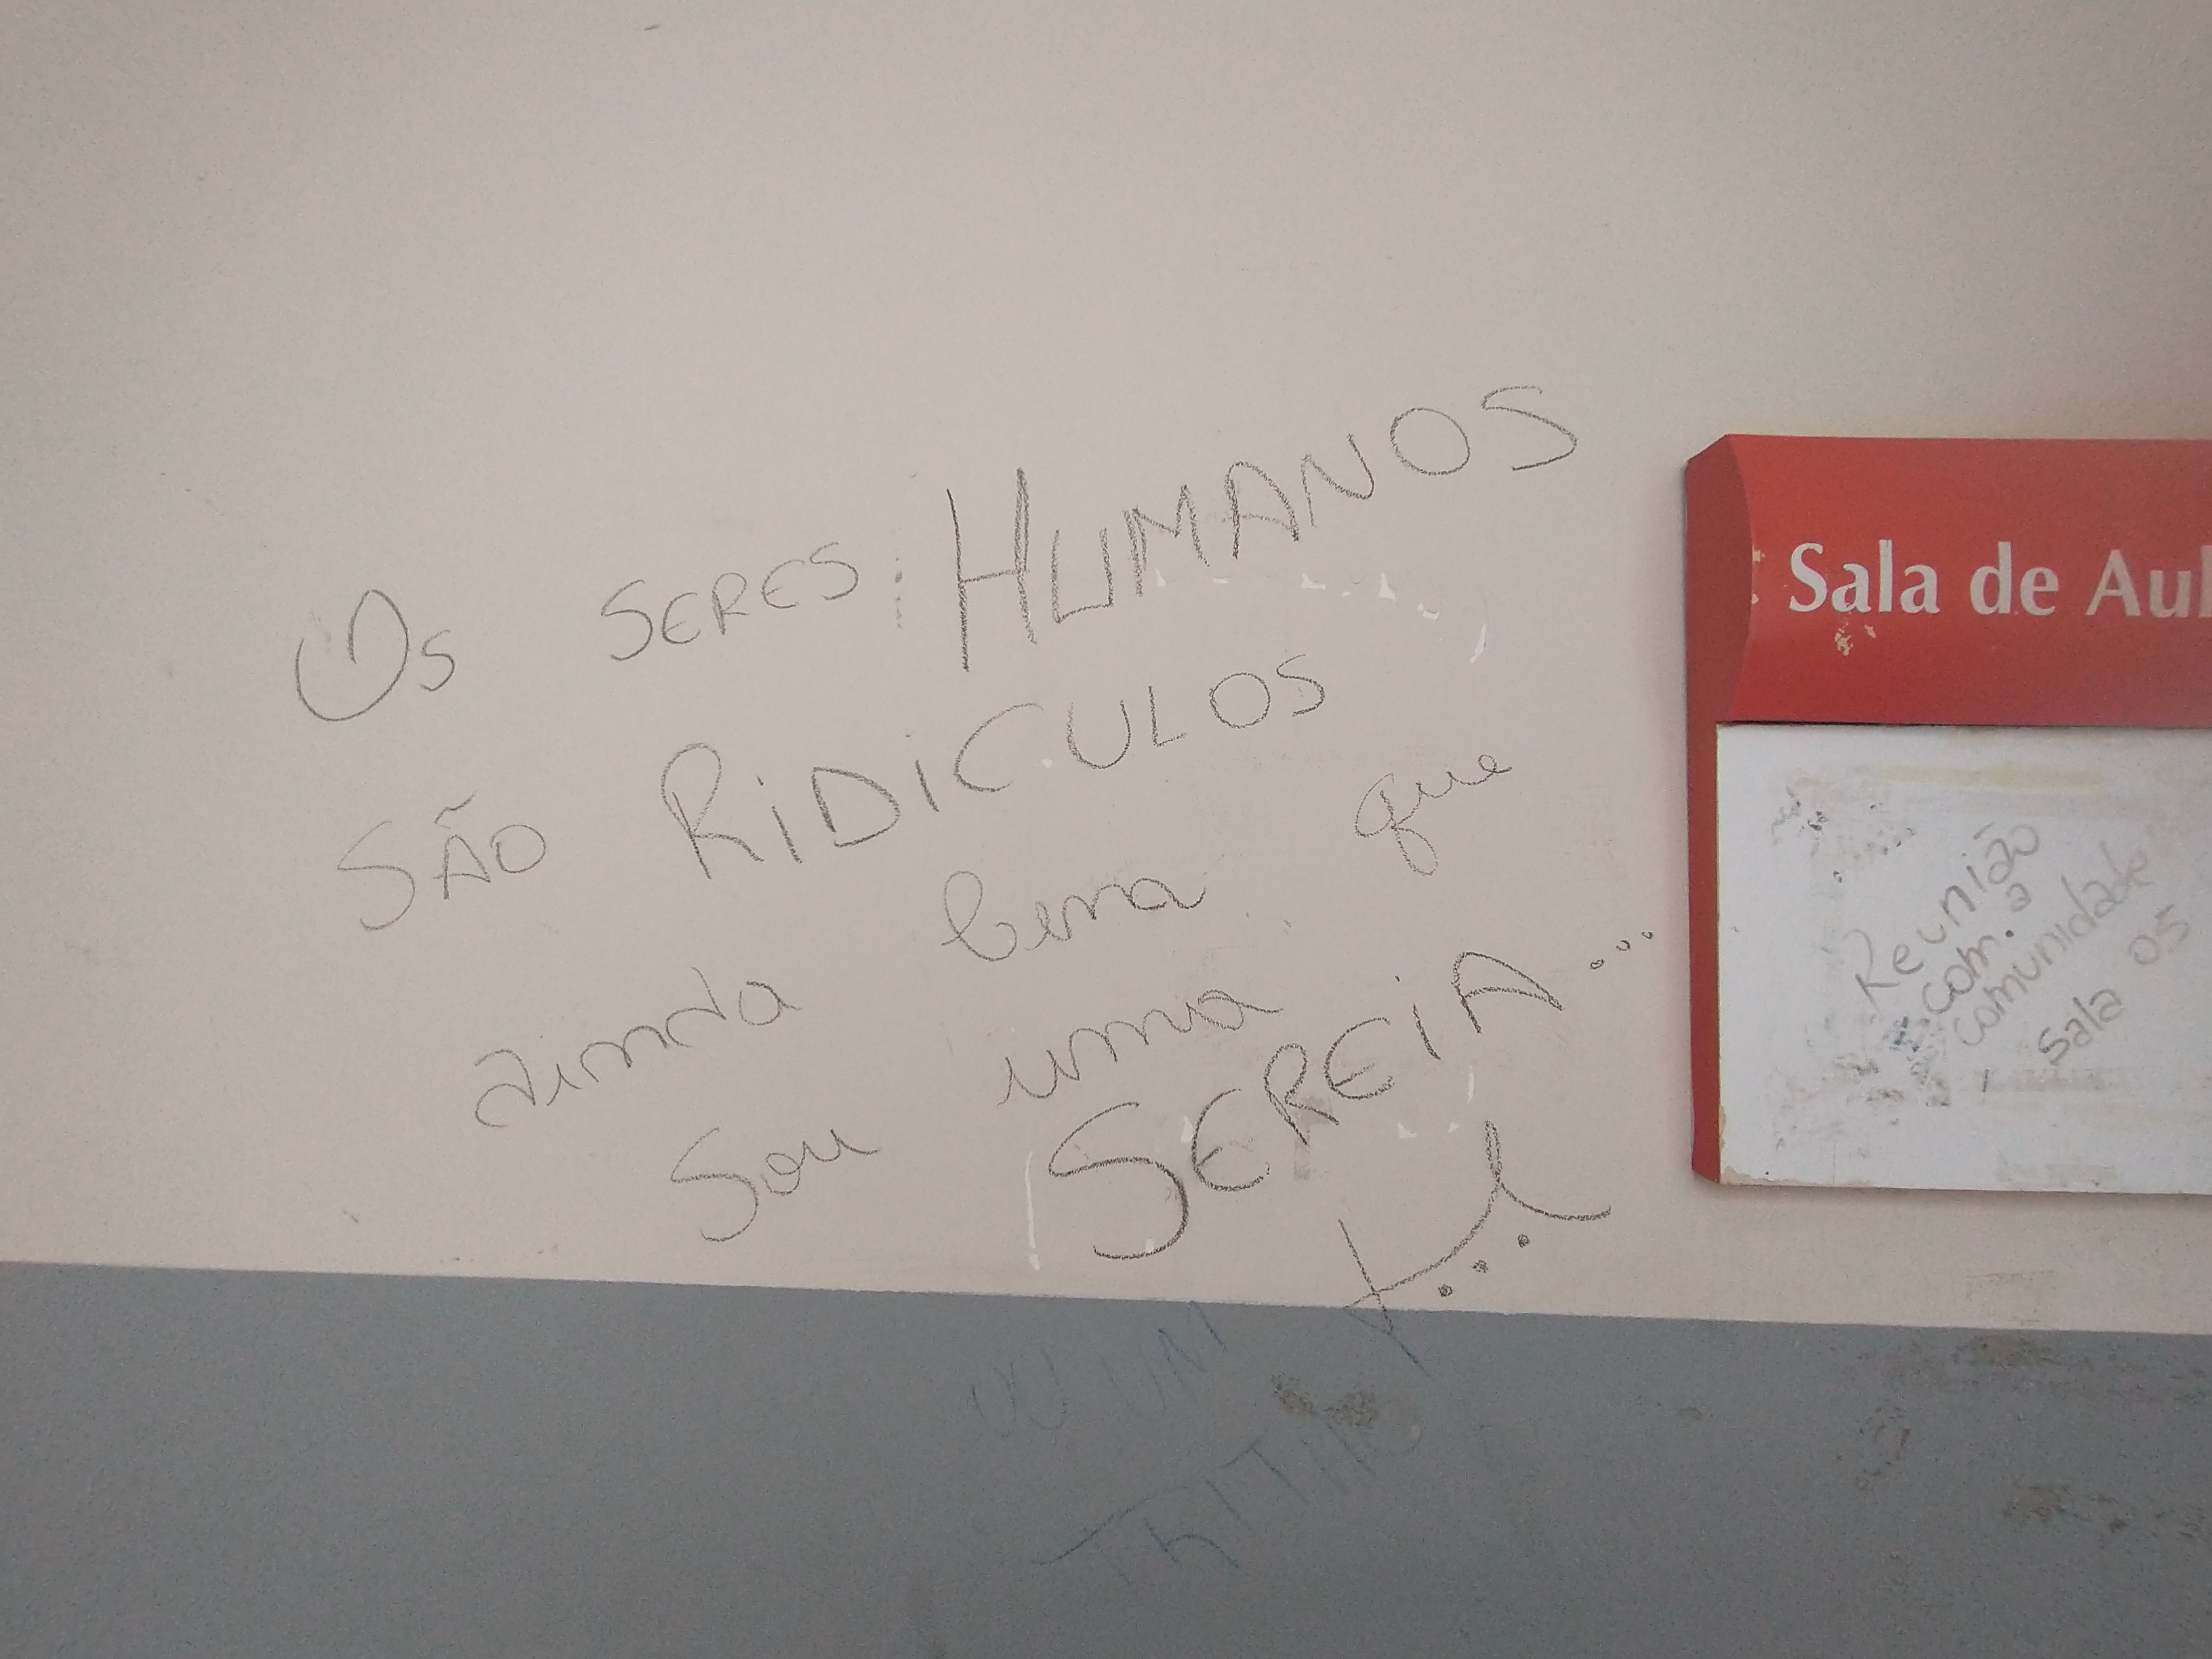 Os SERES HUMANOS
SÃO RIDICULOS
ainda bem que
Sou uma
SEREIA...
Sala de Aul
Reunião
com a
comunidade
Sala 05